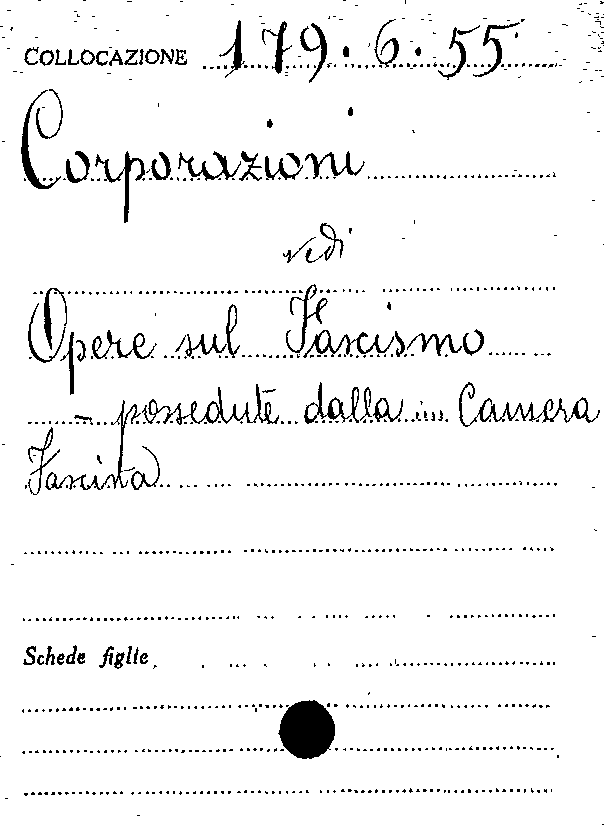 COLLOCAZIONE 179.6.55
Corporazioni
vedi
Opere sul Fascismo
- possedute dalla Camera
Fascista
Schede figlie